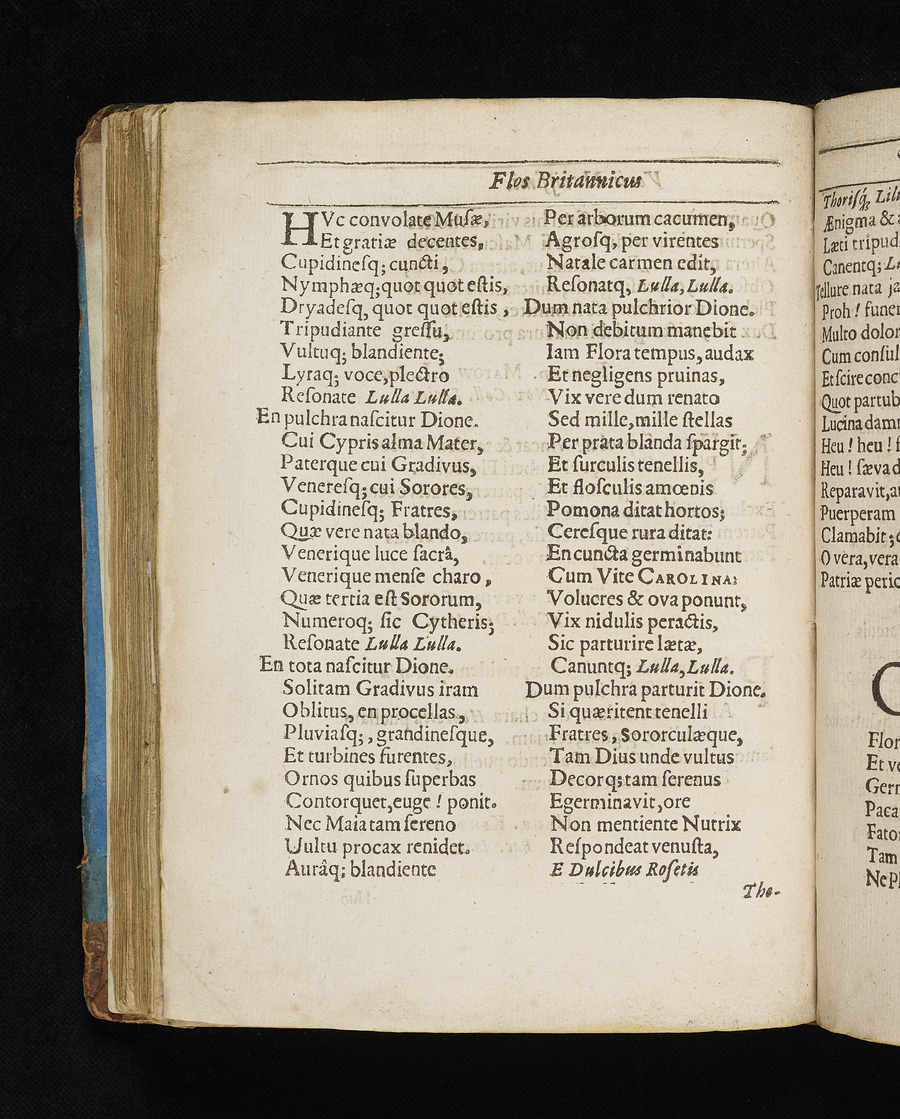 Flos Britannicus
HVc convolate Musæ,
Et gratiæ decentes,
Cupidinesq; cuncti,
Nymphæq; quot quot estis,
Dryadesq, quot quot estis,
Tripudiante gressu,
Vultuq; blandiente;
Lyraq; voce, plectro
Resonate Lulla Lulla.
En pulchra nascitur Dione.
Cui Cypris alma Mater,
Paterque cui Gradivus,
Veneresq; cui Sorores,
Cupidinesq; Fratres,
Quæ vere nata blando,
Venerique luce sacrâ,
Venerique mense charo,
Quæ tertia est Sororum,
Numeroq; sic Cytheris;
Resonate Lulla Lulla.
En tota nascitur Dione.
Solitam Gradivus iram
Oblitus, en procellas,
Pluviasq;, grandinesque,
Et turbines furentes,
Ornos quibus superbas
Contorquet, euge! ponit.
Nec Maia tam sereno
Uultu procax renidet.
Aurâq; blandiente
Per arborum cacumen,
Agrosq, per virentes
Natale carmen edit,
Resonatq, Lulla, Lulla.
Dum nata pulchrior Dione.
Non debitum manebit
Iam Flora tempus, audax
Et negligens pruinas,
Vix vere dum renato
Sed mille, mille stellas
Per prata blanda spargit;
Et surculis tenellis,
Et flosculis amœnis
Pomona ditat hortos;
Ceresque rura ditat:
En cuncta germinabunt
Cum Vite CAROLINA:
Volucres & ova ponunt,
Vix nidulis peractis,
Sic parturire lætæ,
Canuntq; Lulla, Lulla.
Dum pulchra parturit Dione.
Si quæritent tenelli
Fratres, Sororculæque,
Tam Dius unde vultus
Decorq; tam serenus
Egerminavit, ore
Non mentiente Nutrix
Respondeat venusta,
E Dulcibus Rosetis
The-
Thorisq́;
Ænigma &
Læti tripud
Canentq;
Tellure nata
Proh! fune
Multo dolor
Cum consul
Et scire conc
Quot partub
Lucina dam
Heu! heu!
Heu! sæva d
Reparavit,
Puerperam
Clamabit;
O vera, vera
Patriæ peric
Flor
Et ve
Germ
Paca
Fato
Tam